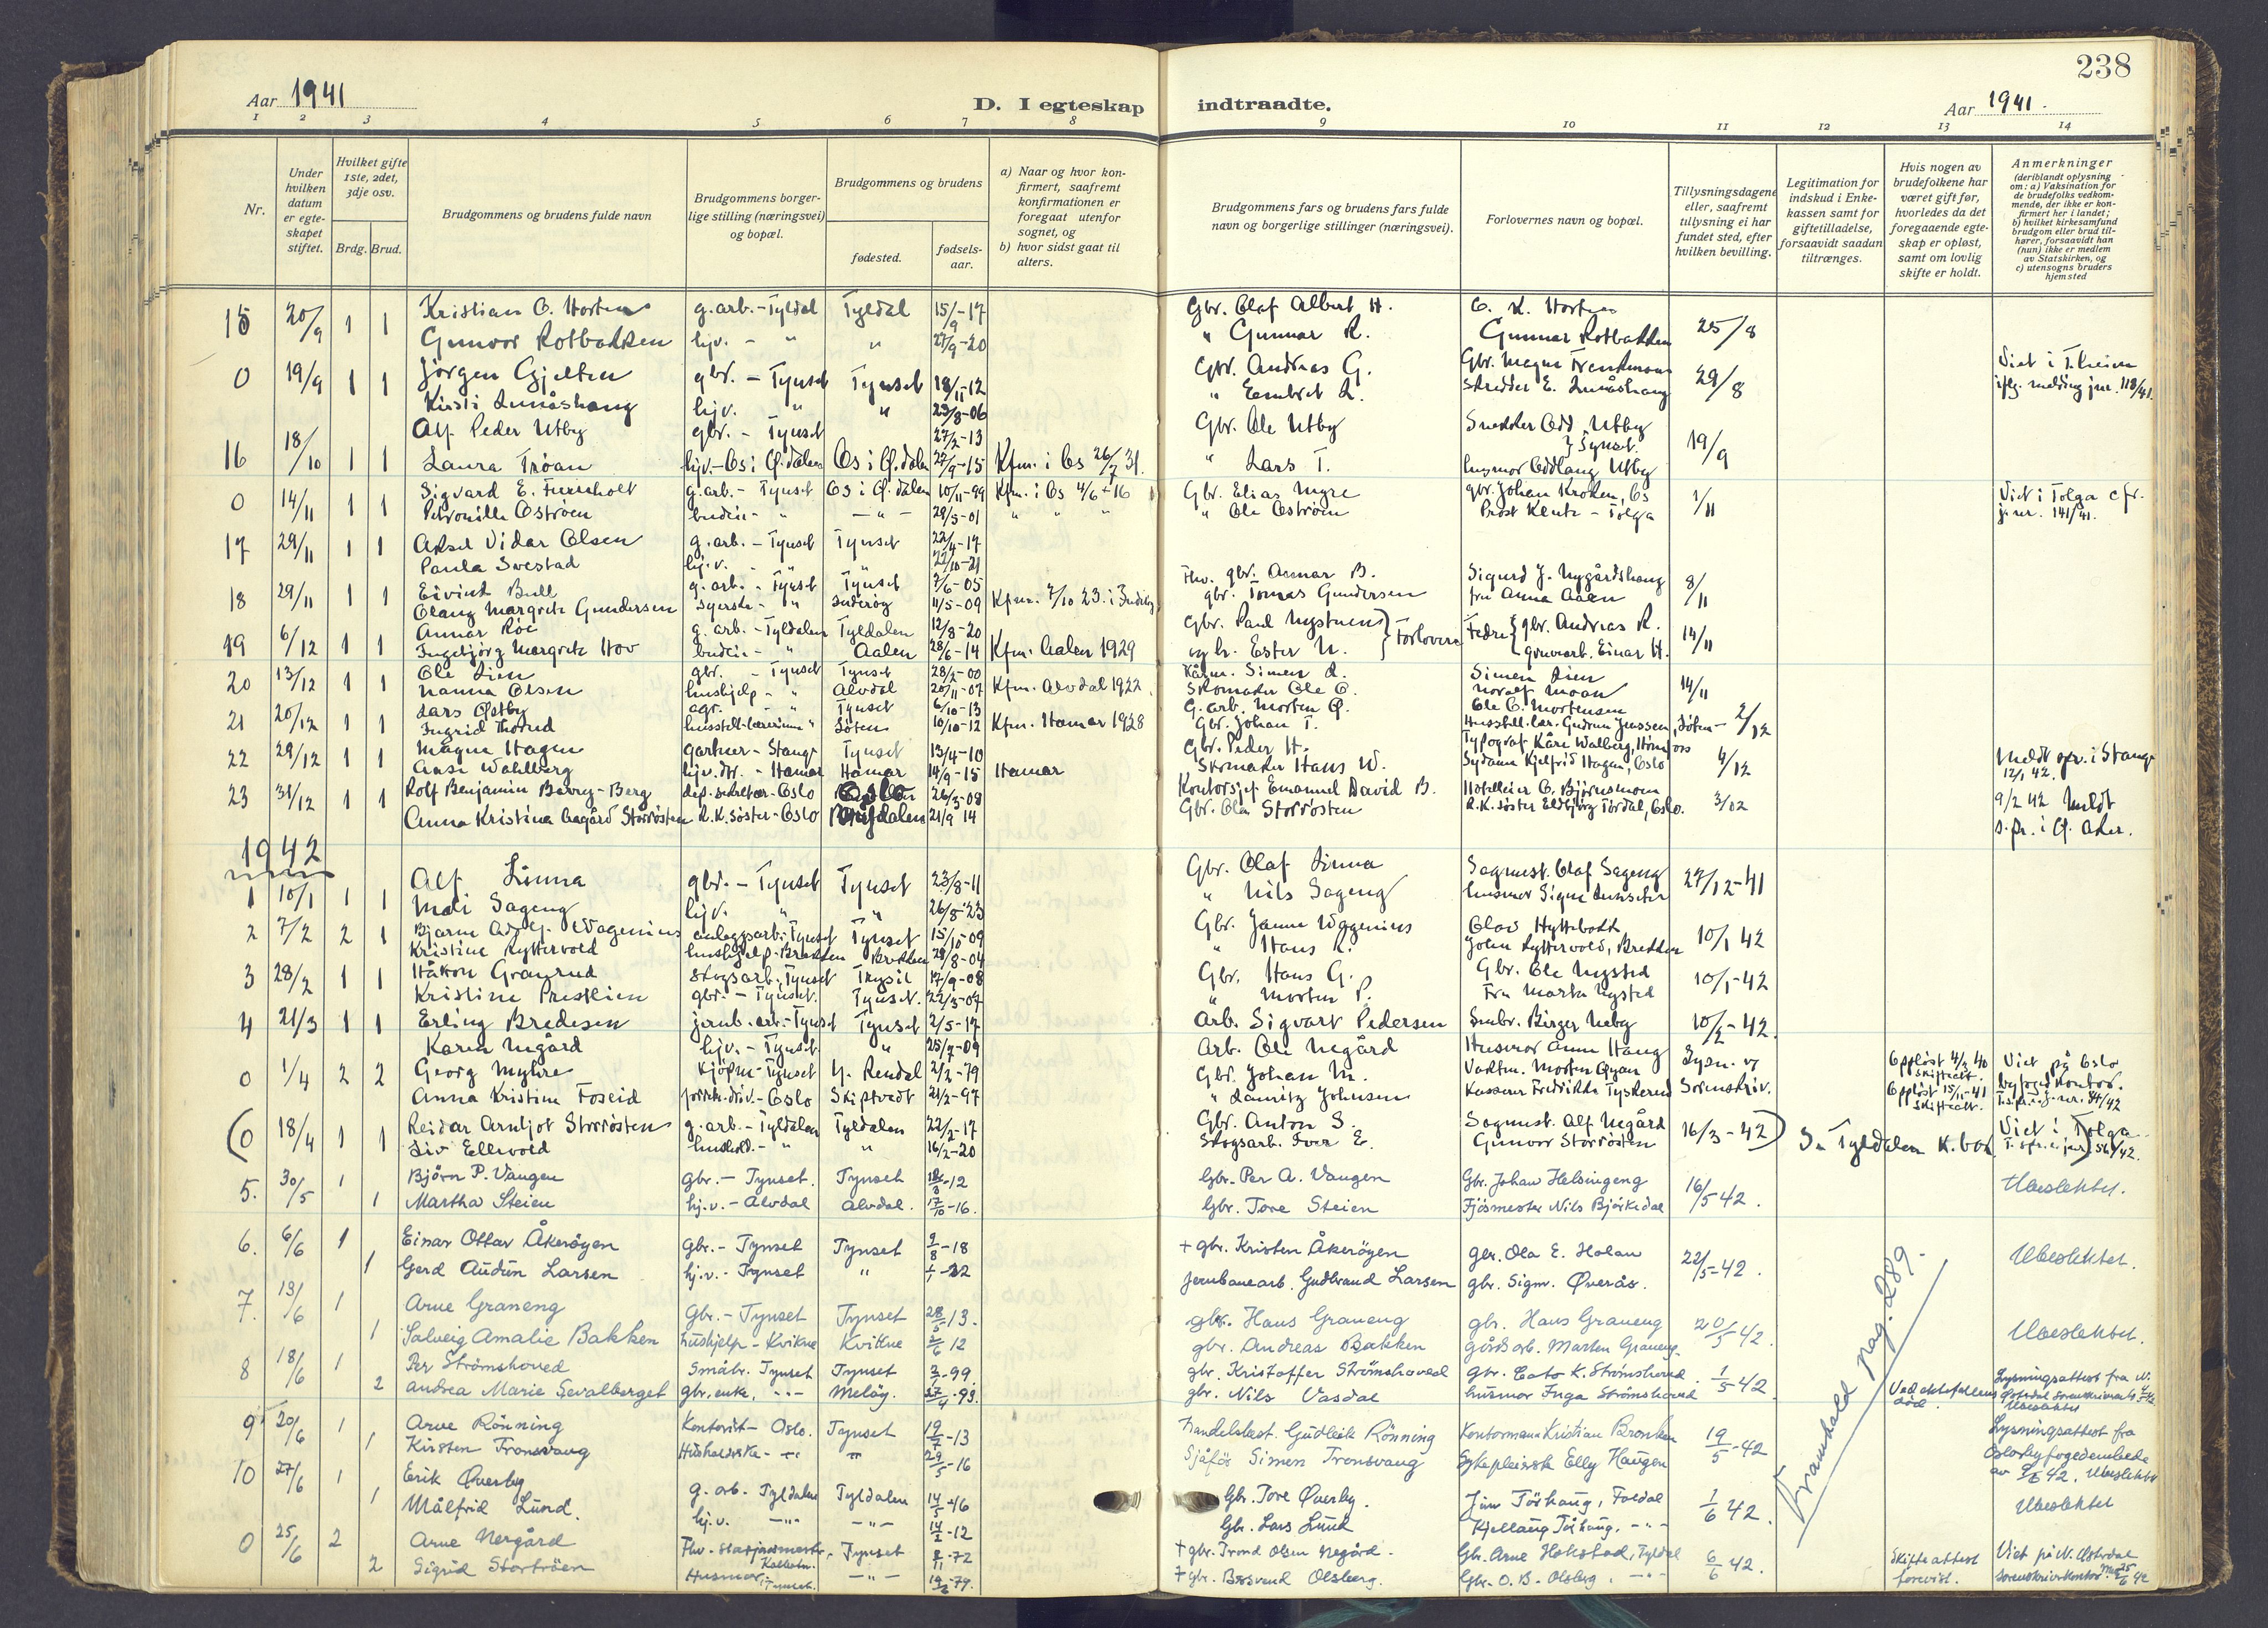 238
Aar 1941
D. I egteskap indtraadte.
Aar 1941.
1 2 3 4 5 6 7 8 9 10 11 12 13 14
Nr.
Under hvilken datum er egte-skapet stiftet.
Hvilket gifte 1ste, 2det, 3dje osv.
Brdg. Brud.
Brudgommens og brudens fulde navn
Brudgommens borger-lige stilling (næringsvei) og bopæl.
Brudgommens og brudens
fødested.
fødsels-aar.
a) Naar og hvor kon-firmert, saafremt konfirmationen er foregaat utenfor sognet, og
b) hvor sidst gaat til alters.
Brudgommens fars og brudens fars fulde navn og borgerlige stillinger (næringsvei).
Forlovernes navn og bopæl.
Tillysningsdagene eller, saafremt tillysning ei har fundet sted, efter hvilken bevilling.
Legitimation for indskud i Enke-kassen samt for giftetilladelse, forsaavidt saadan tiltrænges.
Hvis nogen av brudefolkene har været gift før, hvorledes da det foregaaende egte-skap er opløst, samt om lovlig skifte er holdt.
Anmerkninger (deriblandt oplysning om: a) Vaksination for de brudefolks vedkom-mende, der ikke er kon-firmert her i landet; b) hvilket kirkesamfund brudgom eller brud til-hører, forsaavidt han (hun) ikke er medlem av Statskirken, og c) utensogns bruders hjemsted
15 20/9 1 1 Kristian O. Horten g.arb. - Tyldal Tyldal 15/9-17 Gbr. Olaf Albert H. O. K. Horten 25/8
Gunvor Rotbakken hjv. - " " 27/9-20 " Gunnar R. Gunnar Rotbakken
0 19/9 1 1 Jørgen Gjelten gbr. - Tynset Tynset 18/11-12 Gbr. Andreas G. Gbr. Magne 29/8 Viet i
Kirsti hjv. " " 23/8-06 " Embret L. Skredder E. iflg. melding jnr. 118/41.
16 18/10 1 1 Alf Peder Utby gbr. - Tynset 27/2-13 Gbr. Ole Utby Snekker Odd Utby } Tynset. 19/9
Laura Trøan hjv. - Os i Ø.dalen Os i Ø.dalen 27/9-15 Kfm. i Os 26/7 31. " Lars T. husmor Oddlaug Utby
0 14/11 1 1 Sigvard E. g.arb. - Tynset Os i Ø.dalen 10/11-99 Kfm. i Os 4/6-16 Gbr. Elias Myre gbr. Johan Kroken, Os 1/11 Viet i Tolga cfr.
Petronille Østrøen budeie - " - " - 28/5-01 " " " " Ole Østrøen Prost Klentz - Tolga j.nr. 141/41.
17 29/11 1 1 Aksel Vidar Olsen g.arb. - Tynset Tynset 22/4-17
Paula Svestad hj.v. " " 22/10-21
18 29/11 1 1 Eivind Bull g.arb. - Tynset Tynset 7/6-05 Fhv. gbr. Annar B. Sigurd J. Nygårdshaug 8/11
Olaug Margrete Gundersen syerske - " 11/5-09 Kfm. 7/10 23. i gbr. Tomas Gundersen fru Anna Aaen
19 6/12 1 1 Annar Røe g.arb. - Tyldalen Tyldalen 12/8-20 Gbr. Paul } Forlovere Fedre { gbr. Andreas R. 14/11
Ingebjørg Margrete Hov budeie - " Aalen 28/6-14 Kfm. Aalen 1929 og hr. Ester N. gruvearb. Einar H.
20 13/12 1 1 Ole Lien gbr. - Tynset Tynset 28/2-00 Simen L. Simen Lien 14/11
Nanna Olsen hushjelp - " Alvdal 20/11-07 Kfm. Alvdal 1922. Skomaker Ole O. Moan
21 20/12 1 1 Lars Østby agr. - " Tynset 6/10-13 G.arb. Morten Ø. Ole O. Mortensen 2/12
Ingrid husstell-lærerinne " Løten 10/10-12 Kfm. Hamar 1928 Gbr. Johan T. Husstell.lær. Gudrun Jenssen, Løten
22 29/12 1 1 Magne Hagen gartner - Stange Tynset 13/4-10 Gbr. Peder H. Typograf Kåre Walberg, 4/12 Meldt spr. i Stange
Aase Wahlberg hjv.dtr. - Hamar Hamar 14/9-15 Hamar Skomaker Hans W. Sydame Kjelfrid Hagen, Oslo 12/1 42.
23 31/12 1 1 Rolf Benjamin -Berg dep.sekretær-Oslo Oslo 26/3-08 Kontorsjef Emanuel David B. Hotelleier O. Bjørnsmoen 3/12 9/2 42 Meldt
Anna Kristina Aagård Storrøsten R.K.søster-Oslo 21/9 14 Gbr. Ola Storrøsten R.K.søster Eldbjørg Tørdal, Oslo. s.pr. i Ø. Aker.
1942
1 10/1 1 1 Alf Linna gbr. - Tynset Tynset 23/8-11 Gbr. Olaf Linna Sagmest. Olaf Sageng 27/12-41
Mali Sageng hjv. " " 26/8-23 " Nils Sageng husmor Signe
2 7/2 2 1 Bjarne Adolf Wagenius anleggsarb.-Tynset Tynset 15/10-09 Gbr. Janne Wagenius Olav Hyttebakk 10/1 42
Kristine Ryttervold hushjelp-Brekken Brekken 28/8-04 " Hans R. John Ryttervold, Brekken
3 28/2 1 1 Håkon Granrud skogsarb. Tynset Trysil 17/9-08 Gbr. Hans G. Gbr. Ole Nysted 10/1-42
Kristine Prestlien gbr. - Tynset. Tynset. 22/3-07 " Morten P. Fru Marta Nysted
4 21/3 1 1 Erling Bredesen jernb.arb.-Tynset Tynset 2/5-17 Arb. Sigvart Pedersen Birger Neby 10/2-42.
Karen Negård hjv. - Tynset " 25/7-09 Arb. Ole Negård Husmor Anne Haug
0 1/4 2 2 Georg Myhre Kjøpm-Tynset Y. Rendal 2/2-79 Gbr. Johan M. Vaktm. Morten Øyan Lysn. v/ Oppløst 4/3 40 skifteatt. Viet på Oslo
Anna Kristine Foseid -Oslo Skiptvedt 21/2-97 " Lauritz Johnsen Kasserer Fredrikke Tyskerud Sorenskriv. Oppløst 15/11-41 Skifteatt. byfogd kontor.
(0 18/4 1 1 Reidar Arntjot Storrøsten g.arb.-Tyldalen Tyldalen 22/2-17 Gbr. Anton S. Sagmest. Alf Negård 16/3-42) Se Tyldalen K.bok Viet i Tolga
Liv Ellevold hushold. - " " 16/2-20 Skogsarb. Iver E. Gunvor Storrøsten
5. 30/5 1 Bjørn P. Vangen gbr.- Tynset. Tynset -12 Gbr. Per A. Vangen Gbr. Johan Helsingeng 16/5 42. Ubeslektet.
1 Martha Steien hj.v.- Alvdal Alvdal. 17/10-16. Gbr. Tore Steien Fjøsmester Nils Bjørkedal
6. 6/6 1 Einar Ottar Åkerøyen Gbr.- Tynset Tynset 9/8-18 + gbr. Kristen Åkerøyen gbr. Ola E. Holan 22/5-42. Ubeslektet.
1 Gerd Audun Larsen hj.v.- Tynset " 1/1-22 Jernbanearb. Gudbrand Larsen gbr. Sigm. Øverås.
7. 13/6 1 Arne Graneng Gbr.- Tynset Tynset 28/5-13. gbr. Hans Graneng gbr. Hans Graneng 20/5 42. Ubeslektet.
1 Solveig Amalie Bakken hushjelp - Kvikne Kvikne 2/6 12 gbr. Andreas Bakken gårdsarb. Marten Graneng.
8 18/6 1 Per Strømshoved Småbr. Tynset Tynset -99. gbr. Kristoffer Strømshoved gbr. Eato K. Strømshoved. 1/5 42. Lysningsattest fra N.
2 Andrea Marie Sevalberget gbr.enke, -"- Meløy. 27/4-93. gbr. Nils Vasdal husmor Inga Strømshoved Ved ektefellens død. Østerdal sorenskriveri Ubeslektet
9 20/6 1 Arve Rønning Kontorist - Oslo. Tynset 19/7-13 Handelsbest. Gudleik Rønning Kontormann Kristian Bronken 19/5-42 Lysningsattest fra
1 Kirsten Tronsvang -"- " 29/5-16 Sjåfør Simen Tronsvang Sykepleierske Elly Haugen Oslo byfogedembede
10 27/6 1 Erik Øverby g.arb. Tyldalen Tyldalen 14/5-16 Gbr. Tore Øverby. Tøshaug, Foldal 1/6 42. Ubeslektet
1 Målfrid Lund. hj.v. -"- -"- -12 Gbr. Lars Lund Kjellaug Tøshaug. -"-
0 25/6 2 Arne Nergård Fhv. stasjonsmester, Tynset 8/11-72 + gbr. Trond Olsen Negård. Gbr. Arne Hokstad, Tyldal 6/6 42. Skifteattest forevist. Viet på N. Østerdal
2 Sigrid Stortrøen Husmor, Tynset. -"- -79. + gbr. Olsberg. Gbr. O. B. Olsberg. -"- sorenskriverkontor 25/6 42
Framhald pag. 289.